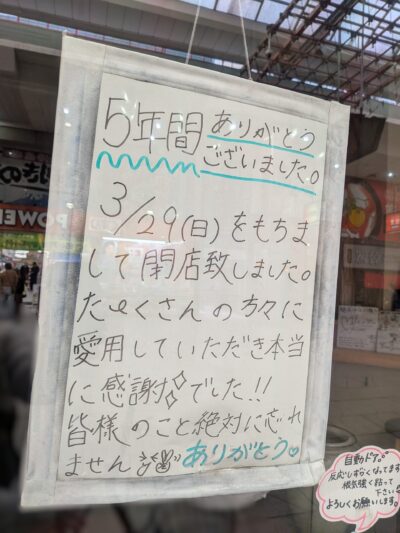 5年間ありがとう
ございました。
3/29(日)をもちま
して閉店致しました。
たくさんの方々に
愛用していただき本当
に感謝でした!!
皆様のこと絶対に忘れ
ません ありがとう
自動ドア。
反応しずらくなってます
根気強く粘って
下さい
よろしくお願いします。
POWER